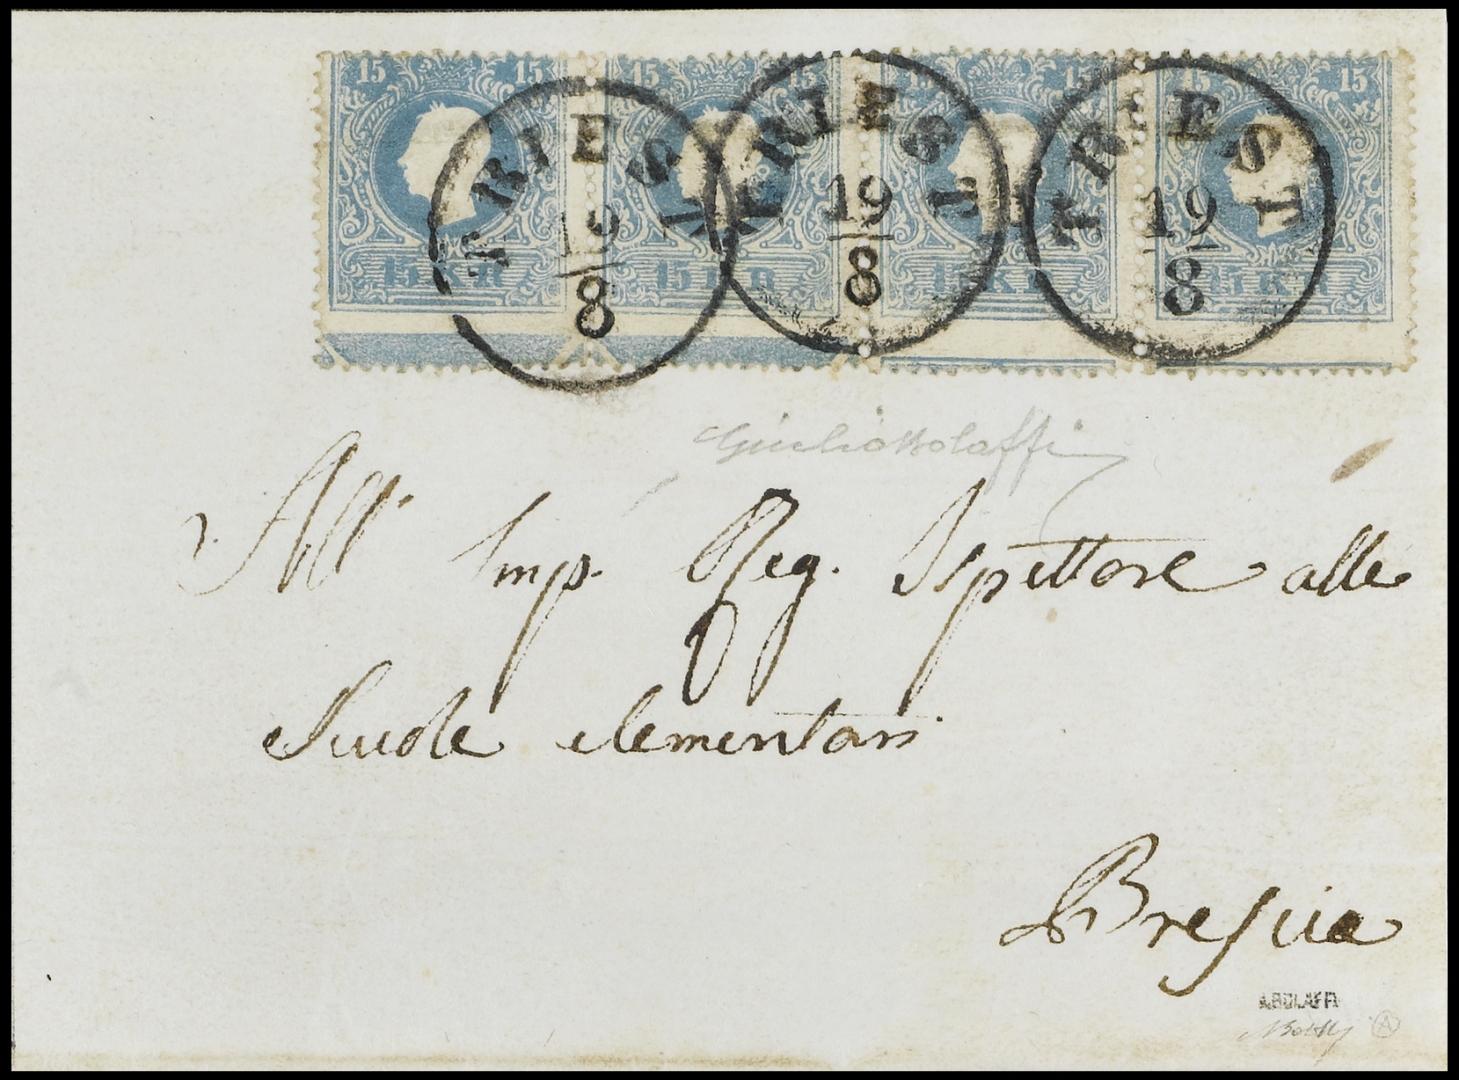 15 15 15 15 15 15 15
TRIEST TRIEST TRIEST
19 19 19
8 8 8
15 KR 15 KR 15 KR 15 KR
Giulio Bolaffi
All' Imp. Reg. Ispettore alle
Scuole elementari
Brescia
A.BOLAFFI
A